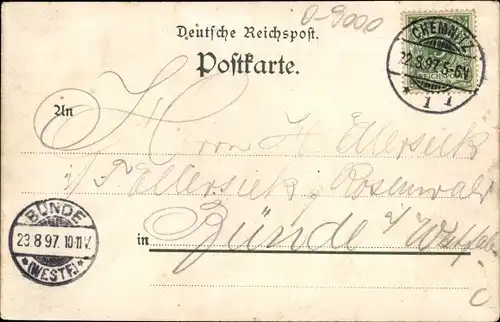 0-9000
Deutsche Reichspost.
Postkarte.
CHEMNITZ
22.8.97. 5-6.V
* 1 1
An Herrn H Ellersiek
i/F Ellersiek & Rosenwald
BÜNDE
23.8.97. 10-11V.
*(WESTF.)*
in Bünde i/ Westfalen